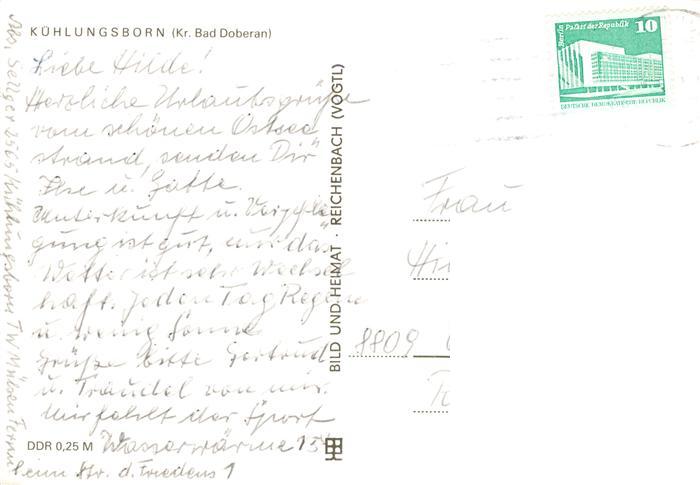 KÜHLUNGSBORN (Kr. Bad Doberan)
Liebe Hilde!
Herzliche Urlaubsgrüße
vom schönen Ostsee
strand, senden Dir
Ilse u. Gatte.
Unterkunft u. Verpfle
gung ist gut, nur das
Wetter ist sehr Wechsel
haft. Jeden Tag Regen
u. wenig Sonne
Grüße bitte Gertrud
u. Traudel von mir.
Mir fehlt der Sport
DDR 0,25 M Wasserwärme 15°
Str. d. Friedens 1
Abs. 2565 Kühlungsborn
BILD UND HEIMAT · REICHENBACH (VOGTL)
Berlin Palast der Republik 10
DEUTSCHE DEMOKRATISCHE REPUBLIK
Frau
Hi
8809